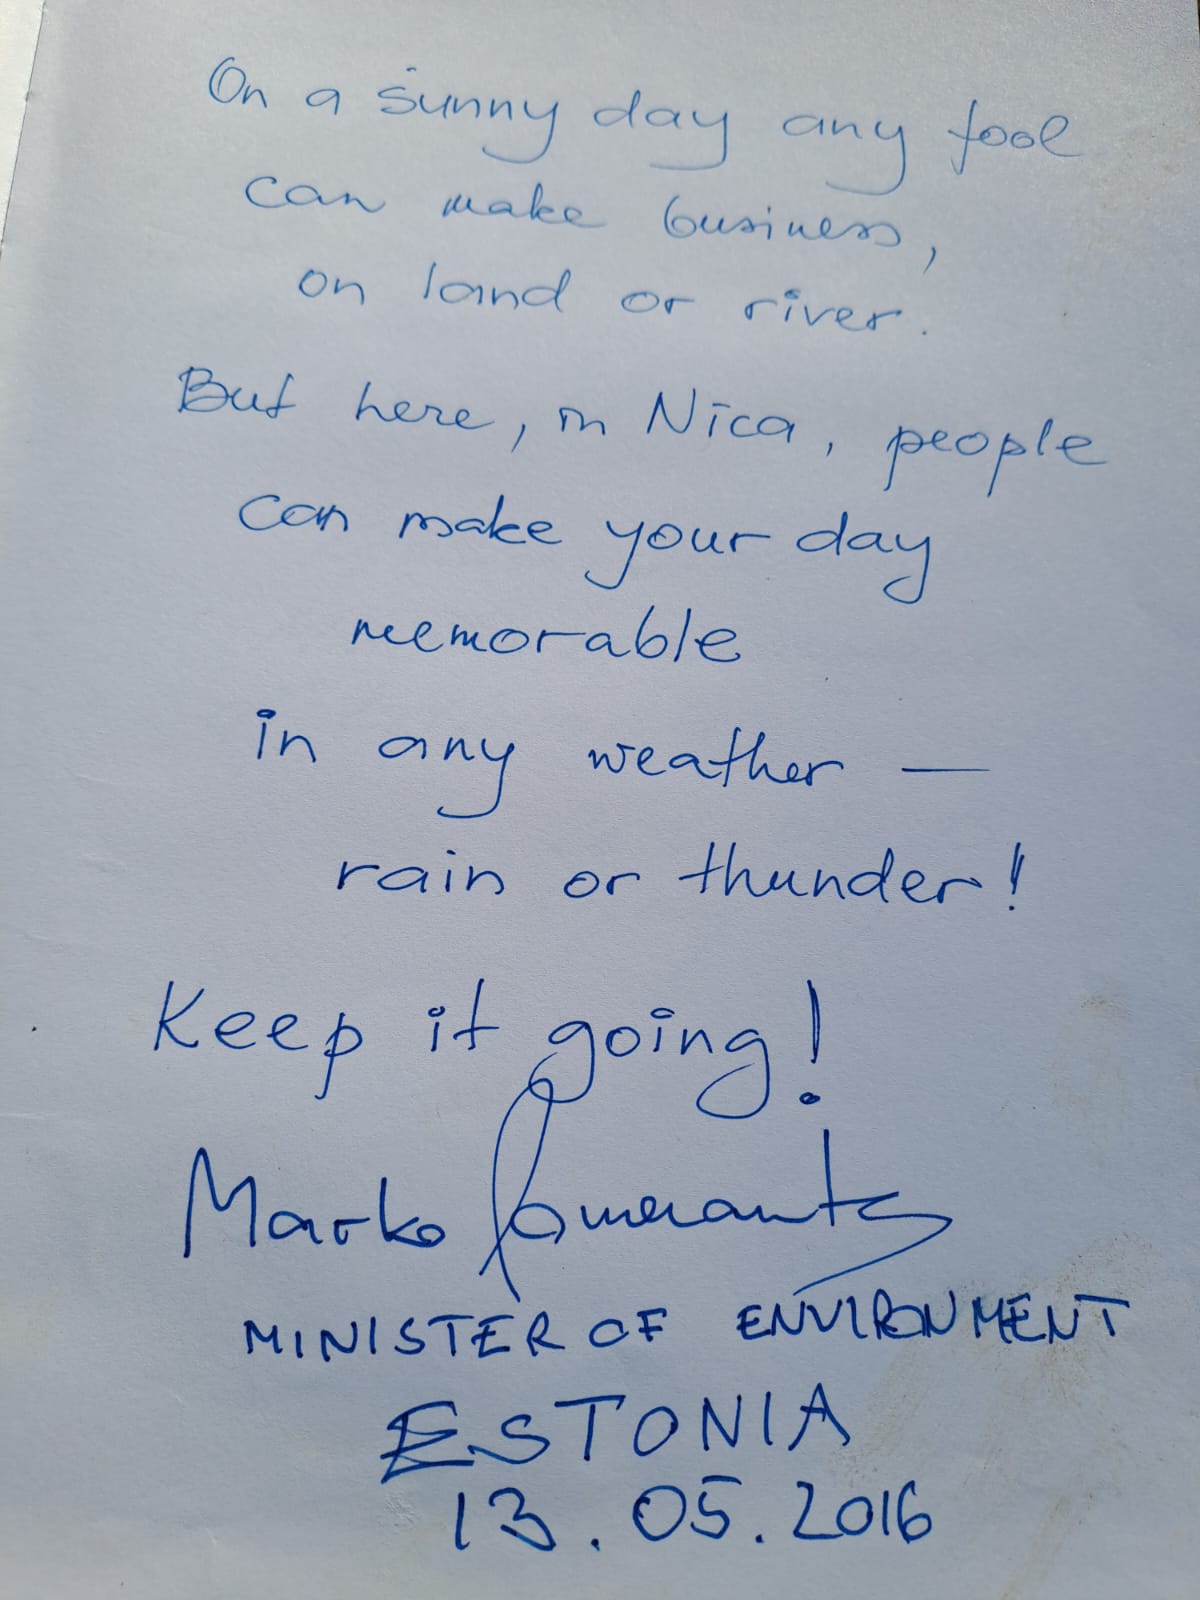 On a sunny day any fool
can make business,
on land or river.
But here, in Nica, people
can make your day
memorable
in any weather —
rain or thunder!
Keep it going!
Marko Pomerants
MINISTER OF ENVIRONMENT
ESTONIA
13.05.2016